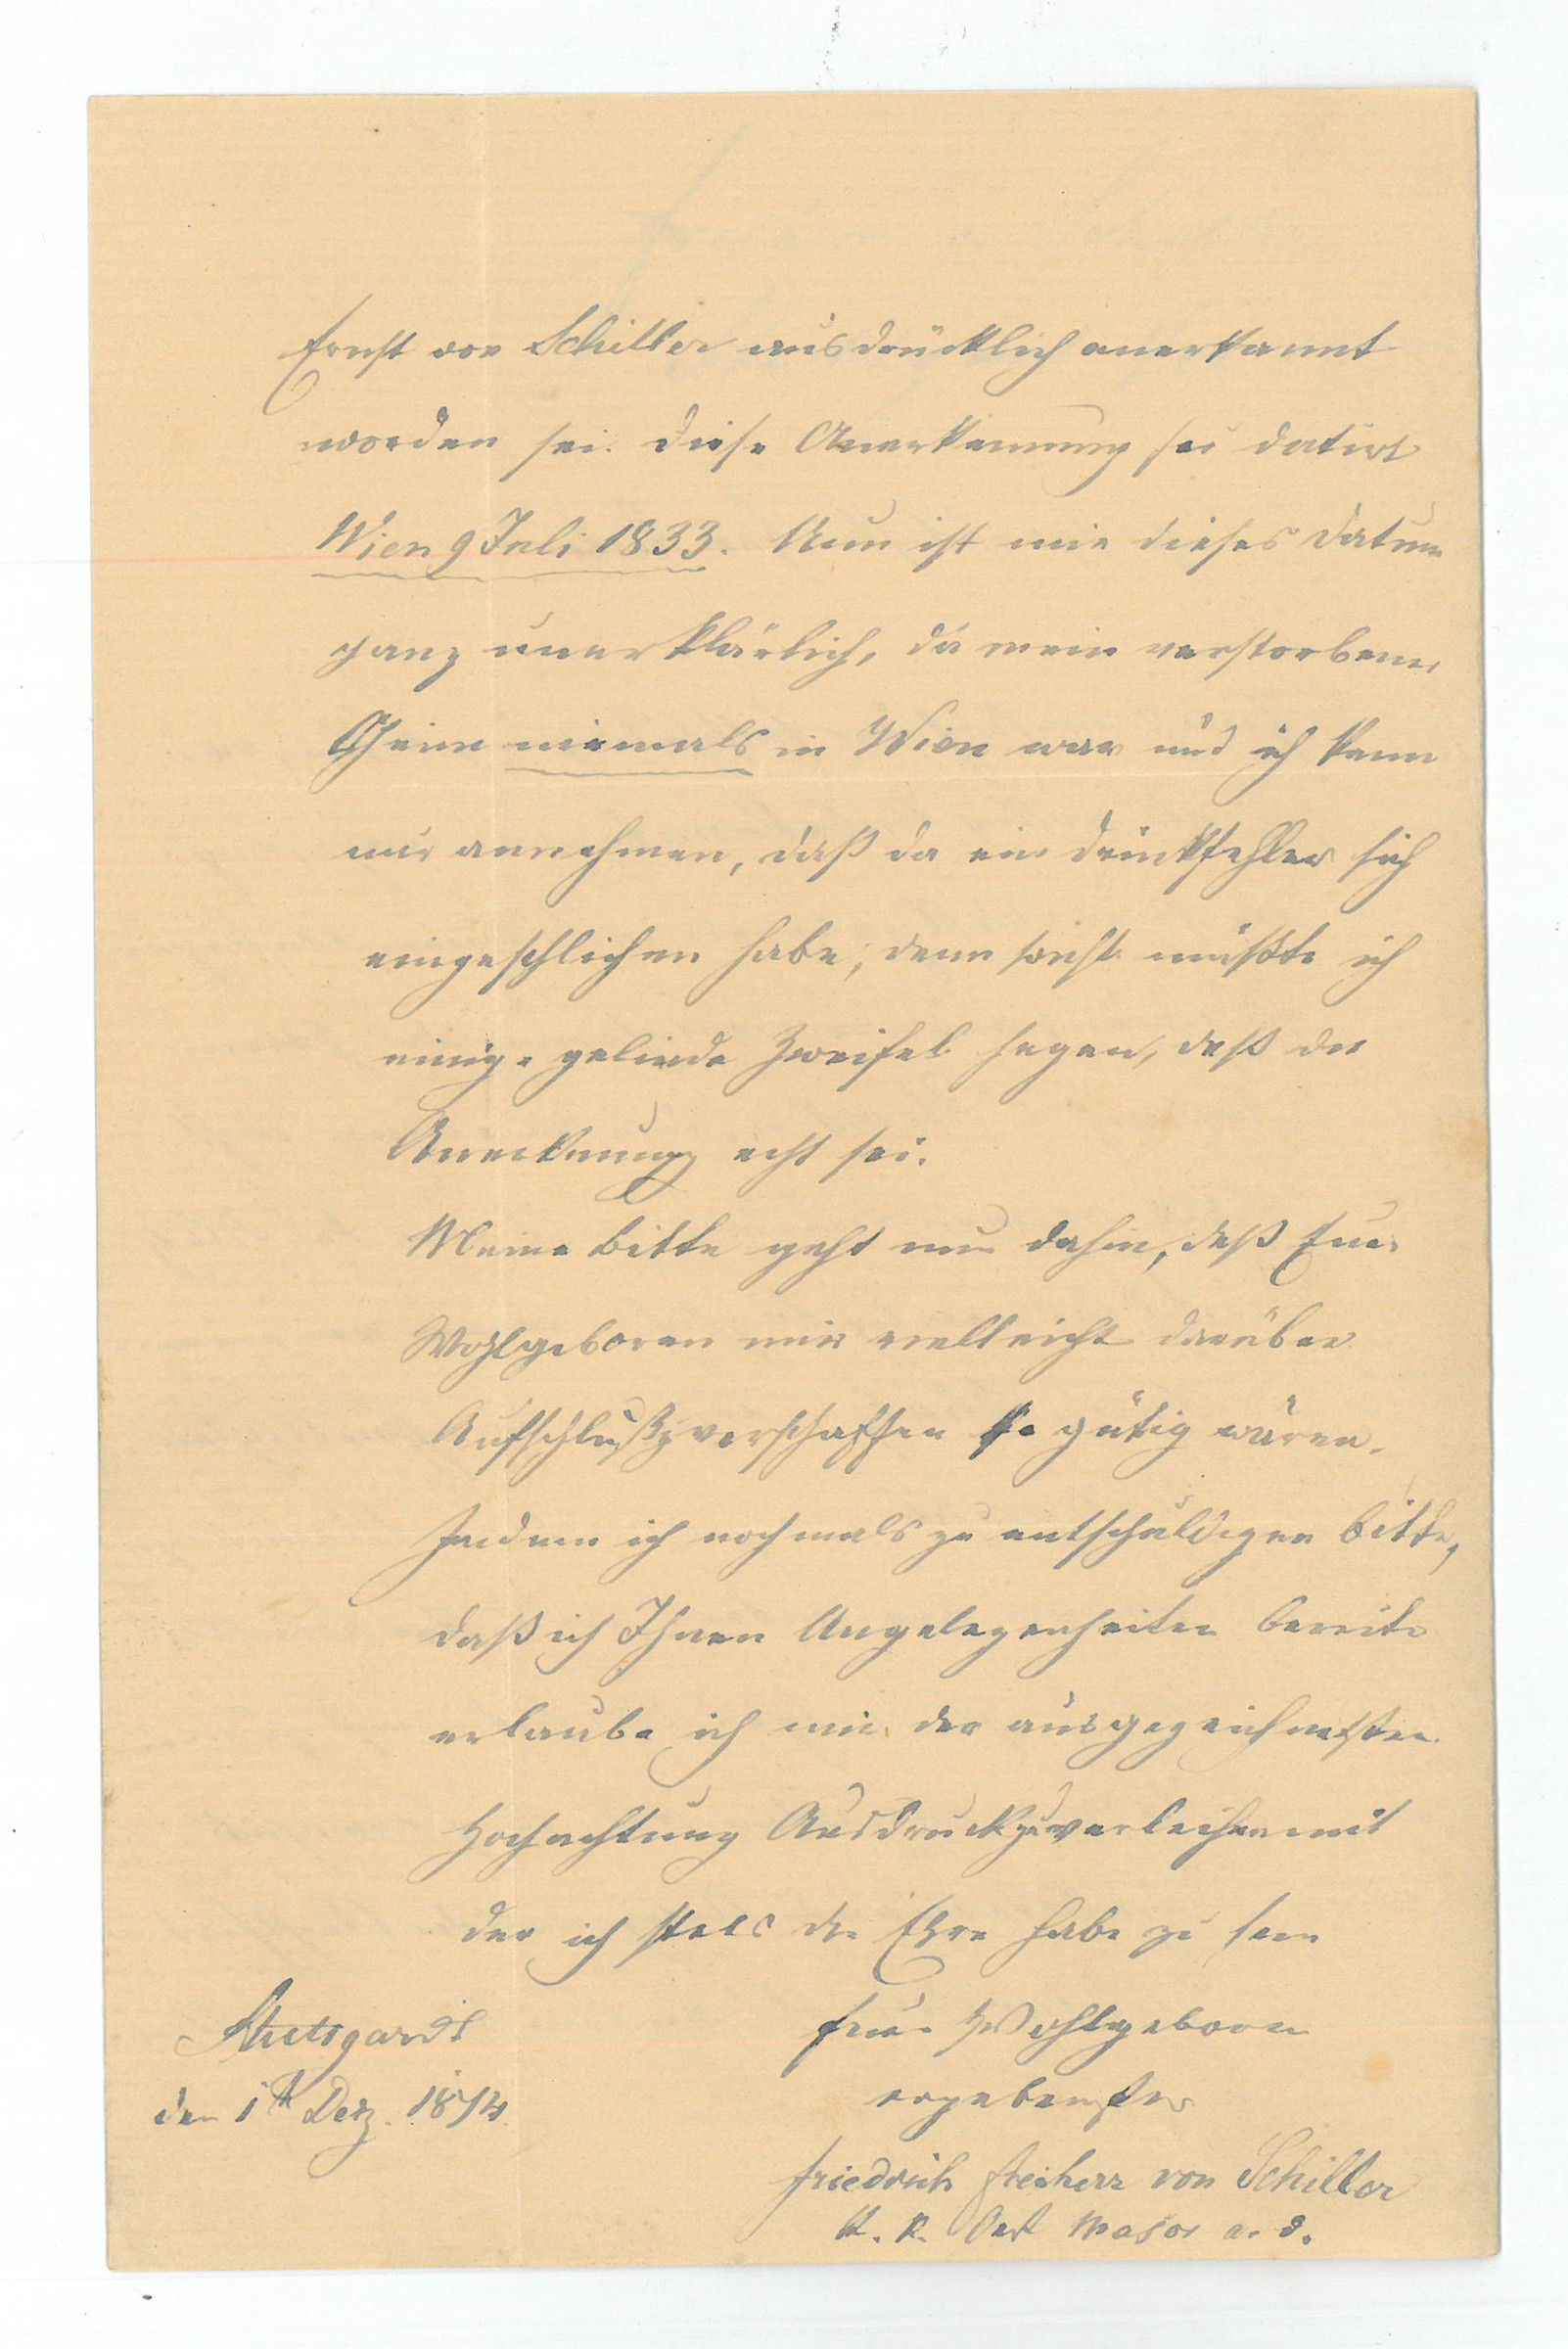 Ernst von Schiller ausdrücklich anerkannt
worden sei. Diese Anerkennung sei datirt
Wien 9 Juli 1833. Nun ist mir dieses Datum
ganz unerklärlich, da mein verstorbener
Oheim niemals in Wien war und ich kann
nur annehmen, daß da ein Druckfehler sich
eingeschlichen habe, denn sonst müßte ich
einige gelinde Zweifel hegen, daß die
Anerknung echt sei.
Meine Bitte geht nun dahin, daß Euer
Wohlgeboren mir vielleicht darüber
Aufschluß z verschaffen so gütig wären.
Indem ich nochmals zu entschuldigen bitte,
daß ich Ihnen Angelegenheiten bereite
erlaube ich mir der ausgezeichnetsten
Hochachtung Ausdruck zu verleihen mit
der ich stets die Ehre habe zu sein
Stuttgardt
den 1t Dez. 1874.
Euer Wohlgeboren
ergebenster
Friedrich Freiherr von Schiller
K. K. Oest Major a. D.